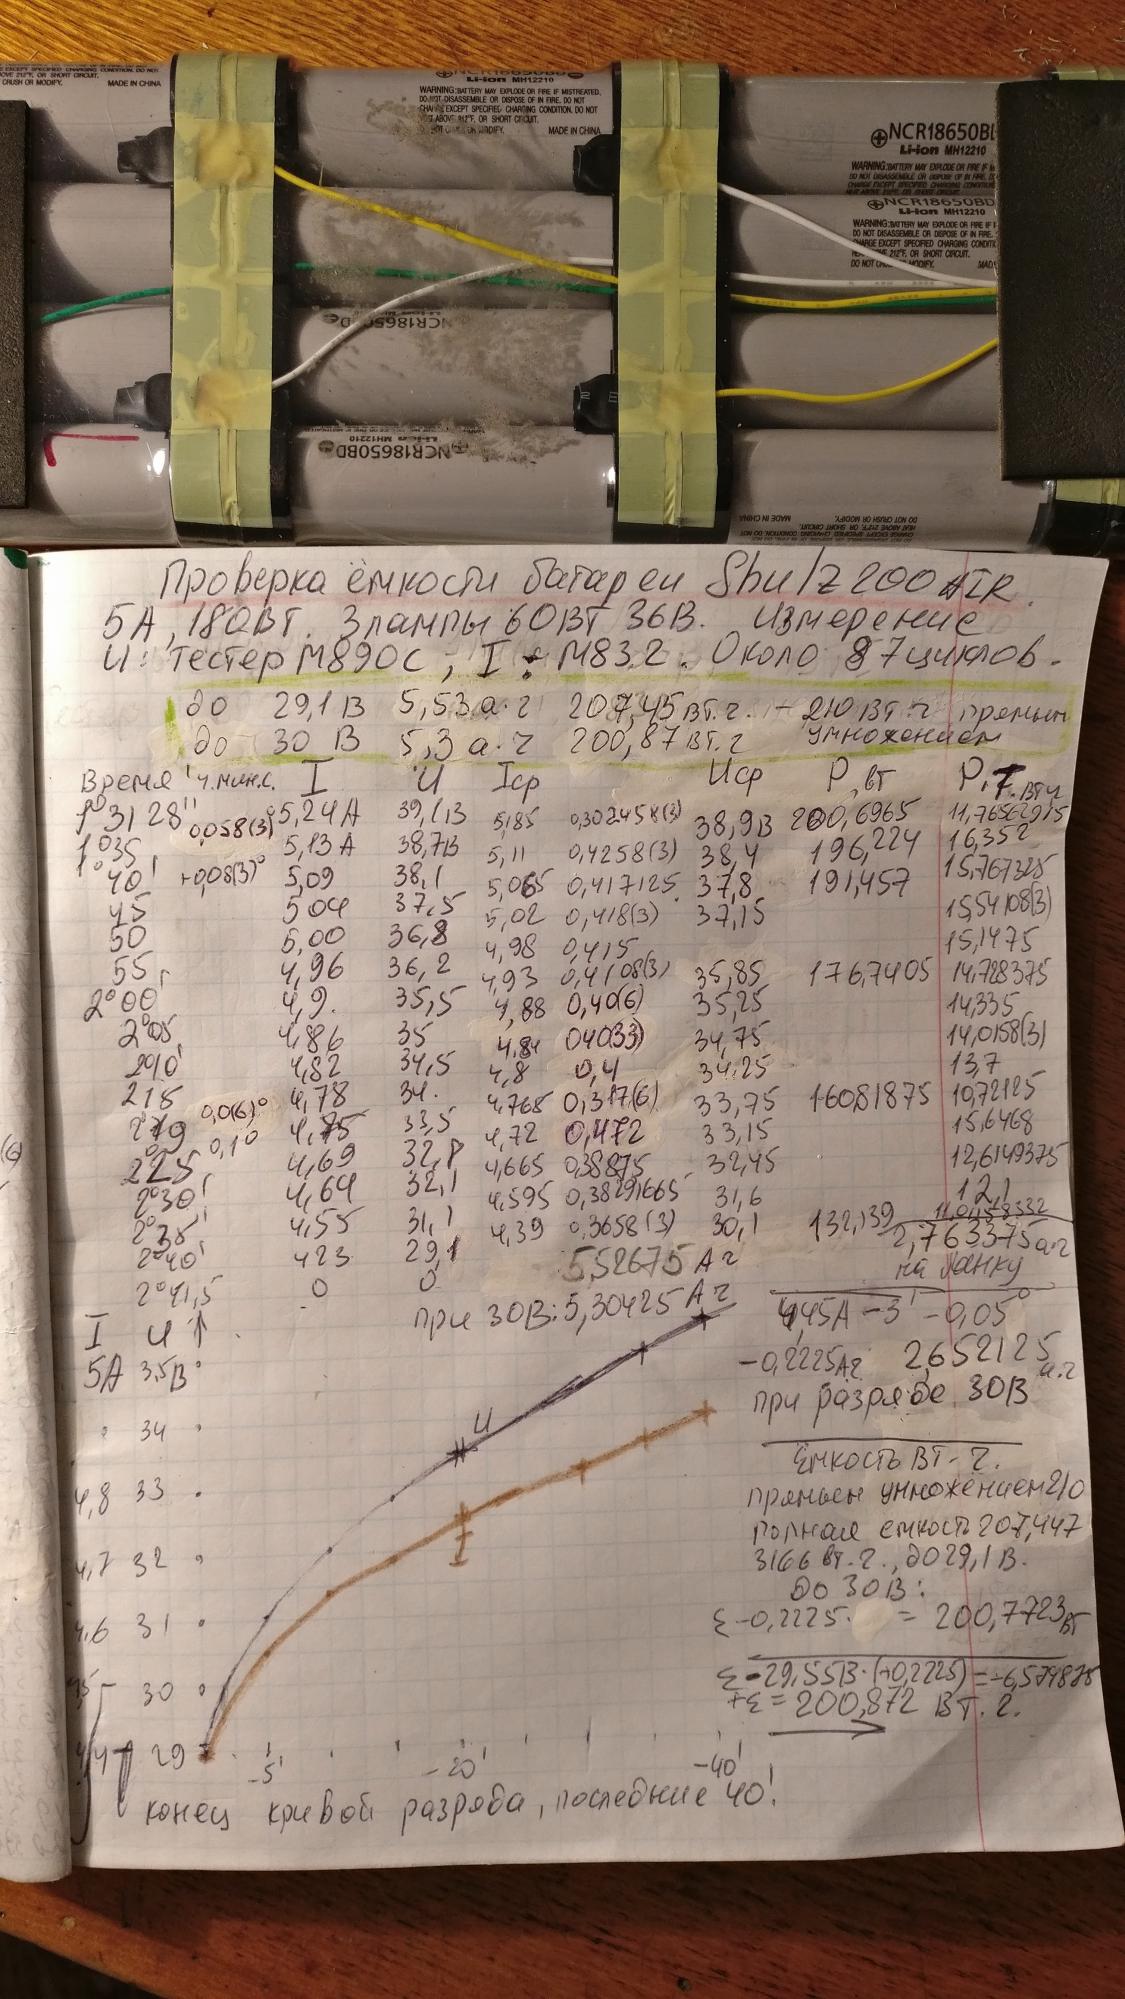 NCR18650BD
Li-ion MH12210
WARNING:BATTERY MAY EXPLODE OR FIRE IF MISTREATED.
DO NOT DISASSEMBLE OR DISPOSE OF IN FIRE. DO NOT
CHARGE EXCEPT SPECIFIED CHARGING CONDITION. DO NOT
HEAT ABOVE 212°F, OR SHORT CIRCUIT.
DO NOT CRUSH OR MODIFY. MADE IN CHINA
CRUSH OR MODIFY. MADE IN CHINA
NCR18650BD
Li-ion MH12210
NCR18650BD
Li-ion MH12210
WARNING:BATTERY MAY EXPLODE OR FIRE IF
DO NOT DISASSEMBLE OR DISPOSE OF IN FIRE
CHARGE EXCEPT SPECIFIED CHARGING CONDIT
NCR18650BD
NCR18650BD
MH12210
Проверка ёмкости батареи Shulz 200 TR.
5А, 180Вт. 3 лампы 60Вт 36В. Измерение
U: тестер М890С, I - М83.2. Около 87 циклов.
до 29,1 В 5,53 а·ч 207,45 вт.ч. - 210 вт.ч прямым
до 30 В 5,3 а·ч 200,87 вт.ч умножением
Время ч.мин.с. I U Iср Uср Р, вт Р,т. вт.ч
1°31'28" 0,058(3) 5,24А 39,1В 5,185 0,302458(3) 38,9В 200,6965
1°35 5,13А 38,7В 5,11 0,4258(3) 38,4 196,224 16,352
1°40' +0,08(3)° 5,09 38,1 5,065 0,417125 37,8 191,457 15,767325
45 5,04 37,5 5,02 0,418(3) 37,15 15,54108(3)
50 5,00 36,8 4,98 0,415 15,1475
55 4,96 36,2 4,93 0,4108(3) 35,85 176,7405 14,728375
2°00' 4,9. 35,5 4,88 0,40(6) 35,25 14,335
2°05 4,86 35 4,84 0,4033) 34,75 14,0158(3)
2°10' 4,82 34,5 4,8 0,4 34,25 13,7
2 15 4,78 34. 4,765 0,317(6) 33,75 160,81875 10,72125
2°19 0,0(6)° 4,75 33,5 4,72 0,472 33,15 15,6468
2°25 0,1° 4,69 32,8 4,665 0,38875 32,45 12,6149375
2°30' 4,64 32,1 4,595 0,38291665 31,6 12,1
2°35' 4,55 31,1 4,39 0,3658(3) 30,1 132,139 11,01158332
2°40' 4,23 29,1 5,52675 А ч 2,763375 а·ч
на банку
2°41,5 0 0 при 30В: 5,30425 А ч
4,45А - 3' - 0,05°
-0,2225Аг 2,652125 а.ч
при разряде 30В
I U ↑
5А 35В
34
4,8 33
4,7 32
4,6 31
30
4,4 29
U
I
-5' -20' -40'
ёмкость Вт-ч.
прямым умножением 210
полная ёмкость 207,447
3166 вт.ч., до 29,1В.
до 30В:
Σ -0,2225· = 200,7723 вт
Σ -29,55В·(-0,2225) = -6,574875
+Σ = 200,872 Вт.ч.
конец кривой разряда, последние 40'.